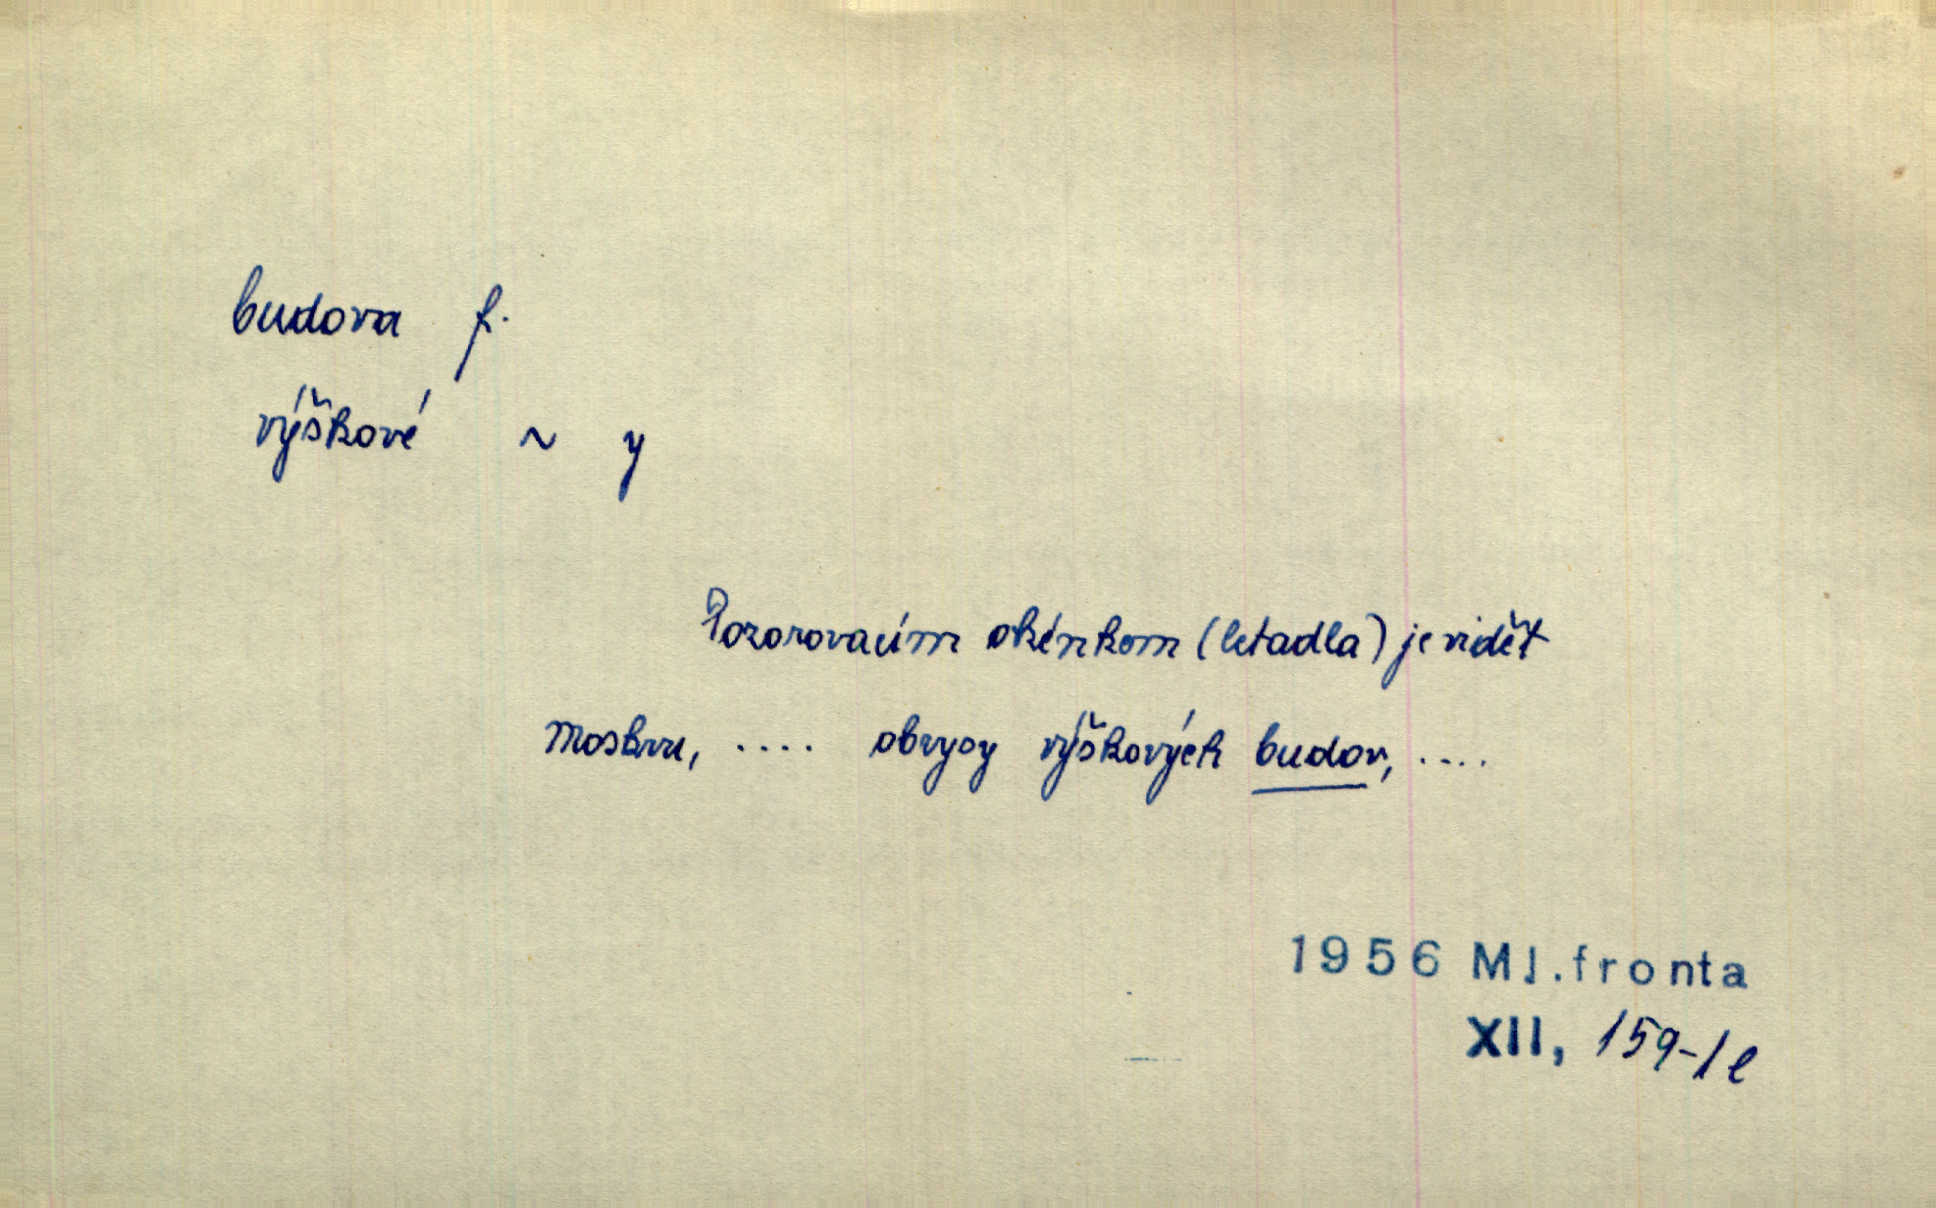 budova f.
výškové ~ y
Pozorovacím okénkem (letadla) je vidět
Moskvu, .... obrysy výškových budov, ....
1956 Ml.fronta
XII, 159-1e